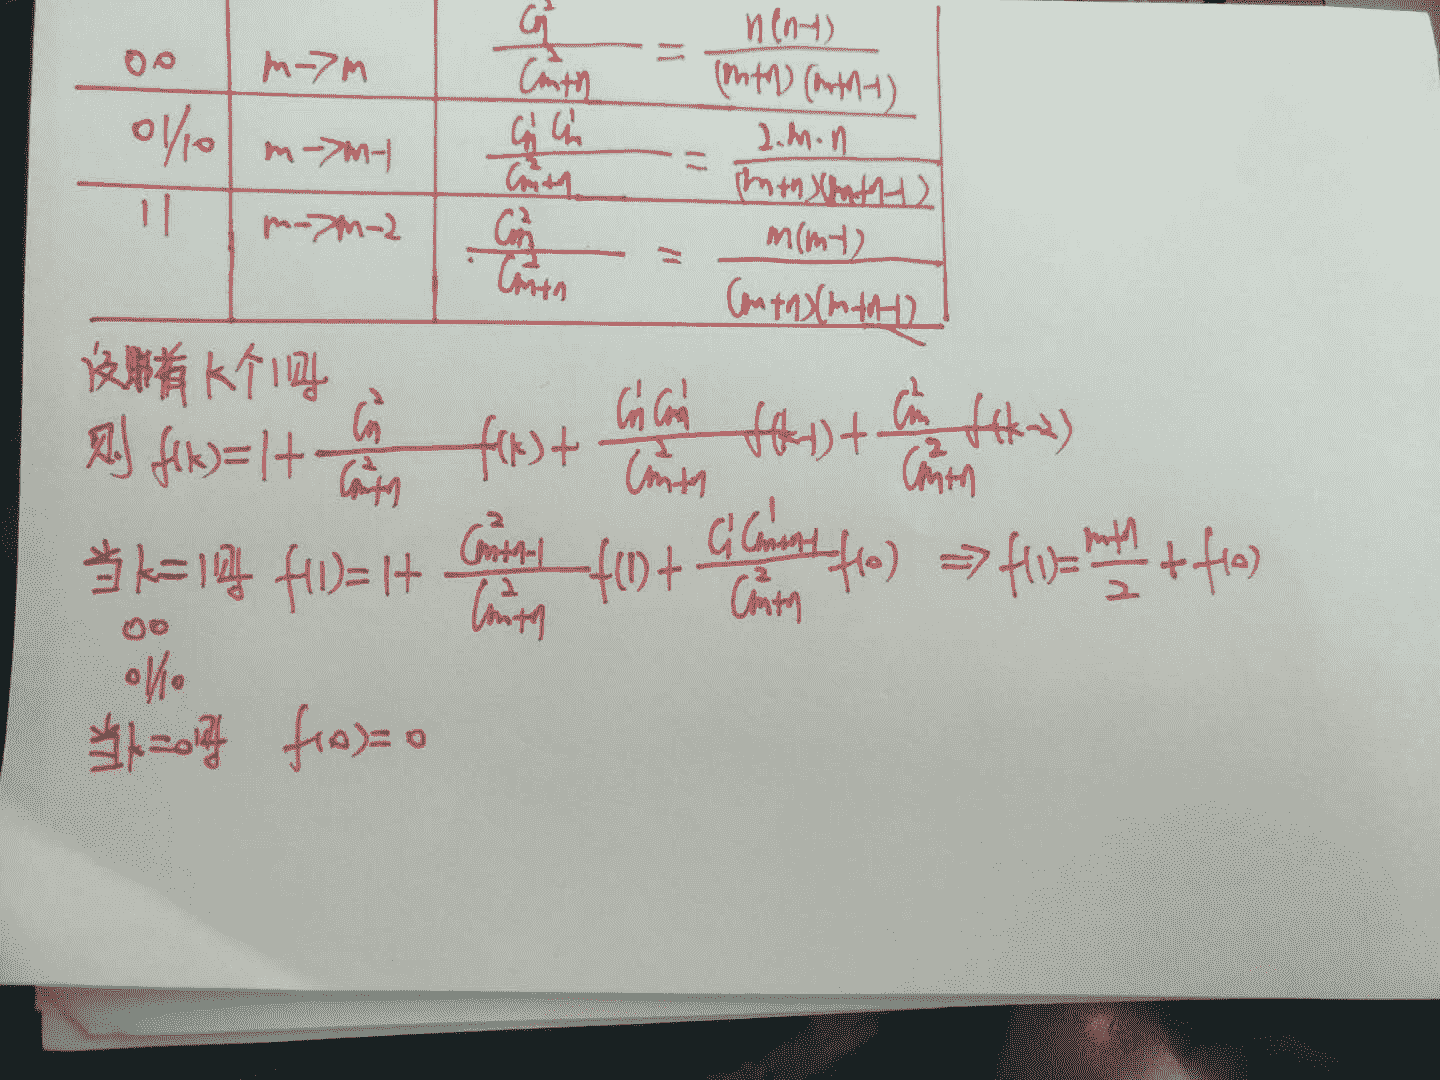 00 m→m C_n^2/C_{m+n}^2 = n(n-1)/(m+n)(m+n-1)
01/10 m→m-1 C_n^1 C_m^1/C_{m+n}^2 = 2·m·n/(m+n)(m+n-1)
11 m→m-2 C_m^2/C_{m+n}^2 = m(m-1)/(m+n)(m+n-1)
设 有k个1时
则 f(k)=1+ C_n^2/C_{m+n}^2 f(k)+ C_n^1 C_m^1/C_{m+n}^2 f(k-1)+ C_m^2/C_{m+n}^2 f(k-2)
当k=1时 f(1)=1+ C_{m+n-1}^2/C_{m+n}^2 f(1)+ C_1^1 C_{m+n-1}^1/C_{m+n}^2 f(0) ⇒ f(1)= m+n/2 + f(0)
00
01/10
当k=0时 f(0)=0